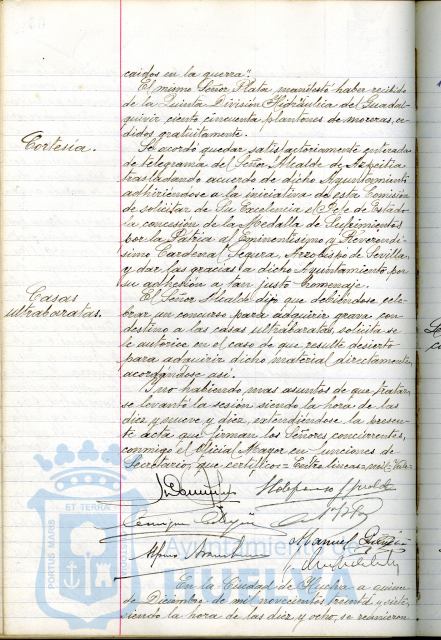 caidos en la guerra".
El mismo Señor Plata manifestó haber recibido
de la Quinta División Hidráulica del Guadal-
quivir ciento cincuenta plantones de moreras, ce-
didos gratuitamente.
Cortesía.
Se acordó quedar satisfactoriamente enterada
de telegrama del Señor Alcalde de Azpeitia
trasladando acuerdo de dicho Ayuntamiento
adhiriéndose a la iniciativa de esta Comisión
de solicitar de Su Excelencia el Jefe de Estado
la concesión de la Medalla de Sufrimientos
por la Patria al Eminentísimo y Reverendí-
simo Cardenal Segura, Arzobispo de Sevilla,
y dar las gracias a dicho Ayuntamiento por
su adhesión a tan justo homenaje.
Casas
ultrabaratas.
El Señor Alcalde dijo que debiéndose cele-
brar un concurso para adquirir grava con
destino a las casas ultrabaratas, solicita se
le autorice en el caso de que resulte desierto
para adquirir dicho material directamente,
acordándose así.
Y no habiendo mas asuntos de que tratar
se levantó la sesión siendo la hora de las
diez y nueve y diez, extendiéndose la presen-
te acta que firman los Señores concurrentes,
conmigo el Oficial Mayor en funciones de
Secretario, que certifico = Entre lineas =
Manuel
PORTUS MARIS ET TERRAE
Ayuntamiento de
HUELVA
En la Ciudad de Huelva a quince
de Diciembre de mil novecientos treinta y siete,
siendo la hora de las diez y ocho, se reunieron